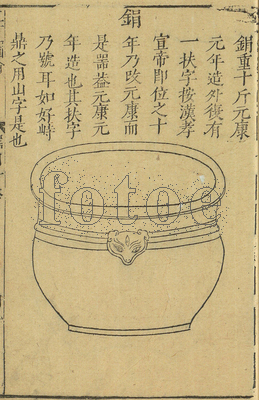 鋗
鋗重十斤元康
元年造外後有
一扶字按漢孝
宣帝即位之十
年乃改元康而
是器蓋元康元
年造也其扶字
乃號耳如好畤
鼎之用山字是也
fotoe